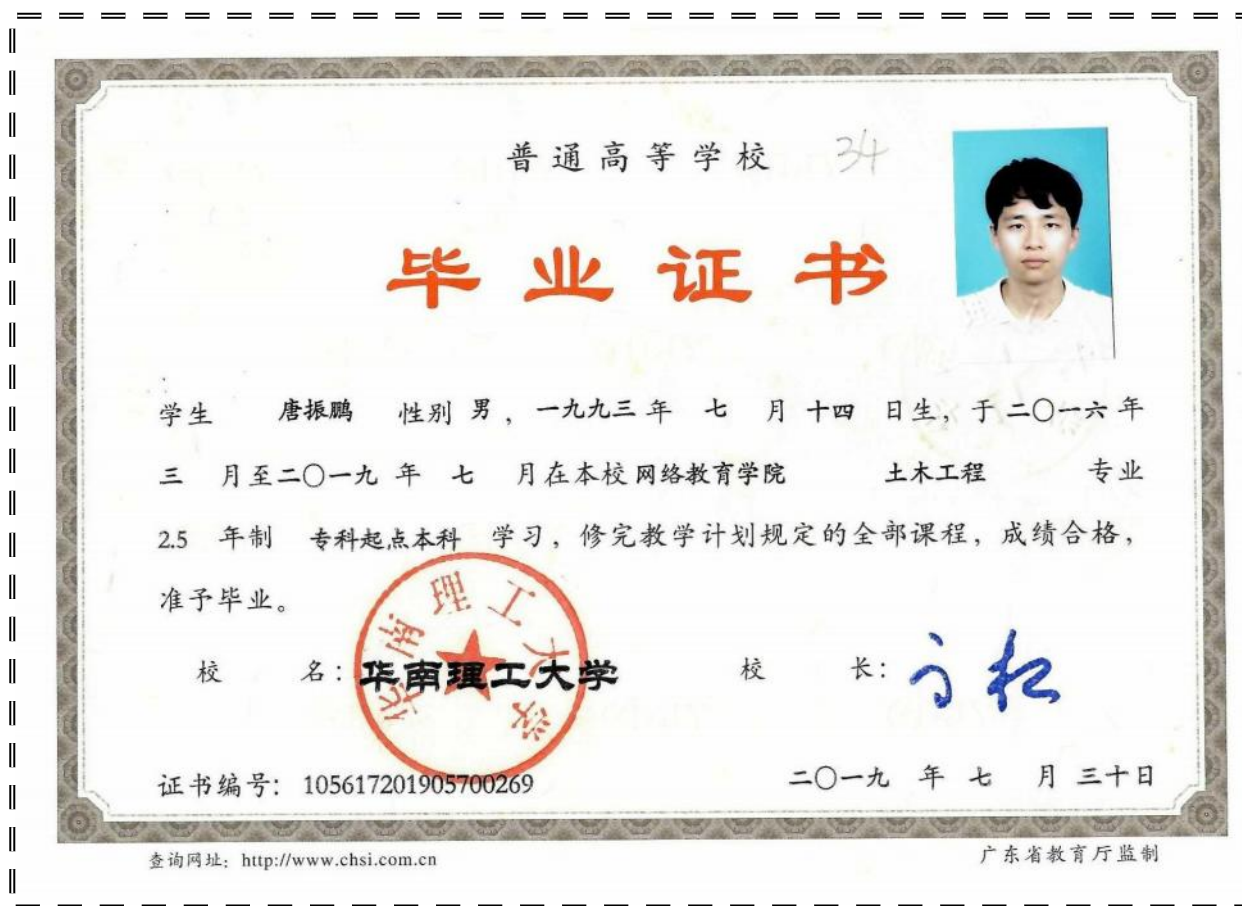 普通高等学校 34
毕业证书
学生 唐振鹏 性别 男，一九九三 年 七 月 十四 日生，于 二〇一六 年
三 月至 二〇一九 年 七 月在本校 网络教育学院 土木工程 专业
2.5 年制 专科起点本科 学习，修完教学计划规定的全部课程，成绩合格，
准予毕业。
校 名：华南理工大学 校 长：
华南理工大学
证书编号：105617201905700269 二〇一九 年 七 月 三十日
查询网址：http://www.chsi.com.cn 广东省教育厅监制